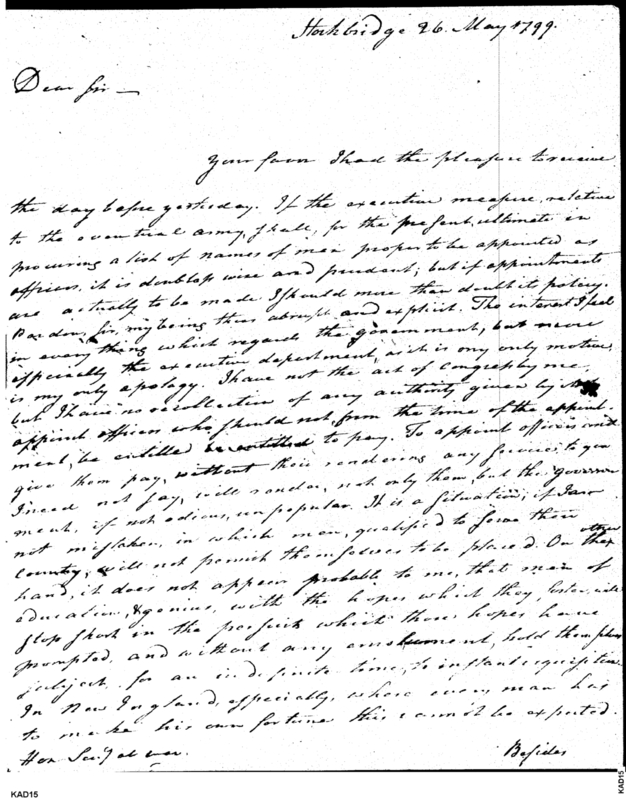 Stockbridge 26. May 1799.
Dear Sir —
Your favor I had the pleasure to receive
the day before yesterday. If the executive measure, relative
to the eventual army, shall, for the present, ultimate in
procuring a list of names of men proper to be appointed as
officers, it is doubtless wise and prudent; but if appointments
are actually to be made I should more than doubt its policy.
Pardon, Sir, my being thus abrupt and explicit. The interest I feel
in every thing which regards the government, but more
especially the executive department, as it is my only motive,
is my only apology. I have not the act of congress by me,
but I have no recollection of any authority given by
appoint officers who should not, from the time of the appoint
ment, be entitled to pay. To appoint officers and
give them pay, without their rendering any service, to you
I need not say, will render, not only them, but the govern
ment, if not odious, unpopular. It is a situation, if I am
not mistaken, in which men, qualified to serve their
country, will not permit themselves to be placed. On the other
hand, it does not appear probable to me, that men of
education, & genius, with the hopes which they foster, will
stop short in the pursuits which those hopes have
prompted, and without any emolument, hold themselves
subject, for an indefinite time, to instant requisition.
In New England, especially, where every man has
to make his own fortune this cannot be expected.
Hon Secy at war.
Besides
KAD15
KAD15